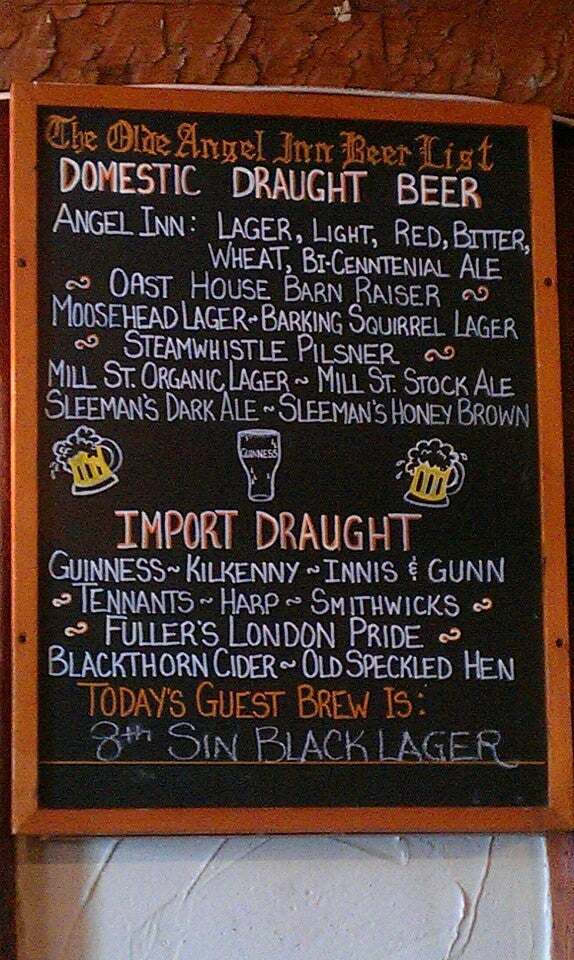 The Olde Angel Inn Beer List
DOMESTIC DRAUGHT BEER
ANGEL INN: LAGER, LIGHT, RED, BITTER,
WHEAT, BI-CENNTENIAL ALE
~ OAST HOUSE BARN RAISER ~
MOOSEHEAD LAGER~BARKING SQUIRREL LAGER
~ STEAMWHISTLE PILSNER ~
MILL ST. ORGANIC LAGER ~ MILL ST. STOCK ALE
SLEEMAN'S DARK ALE ~ SLEEMAN'S HONEY BROWN
GUINNESS
IMPORT DRAUGHT
GUINNESS ~ KILKENNY ~ INNIS & GUNN
~ TENNANTS ~ HARP ~ SMITHWICKS ~
~ FULLER'S LONDON PRIDE ~
BLACKTHORN CIDER ~ OLD SPECKLED HEN
TODAY'S GUEST BREW IS:
8th SIN BLACK LAGER